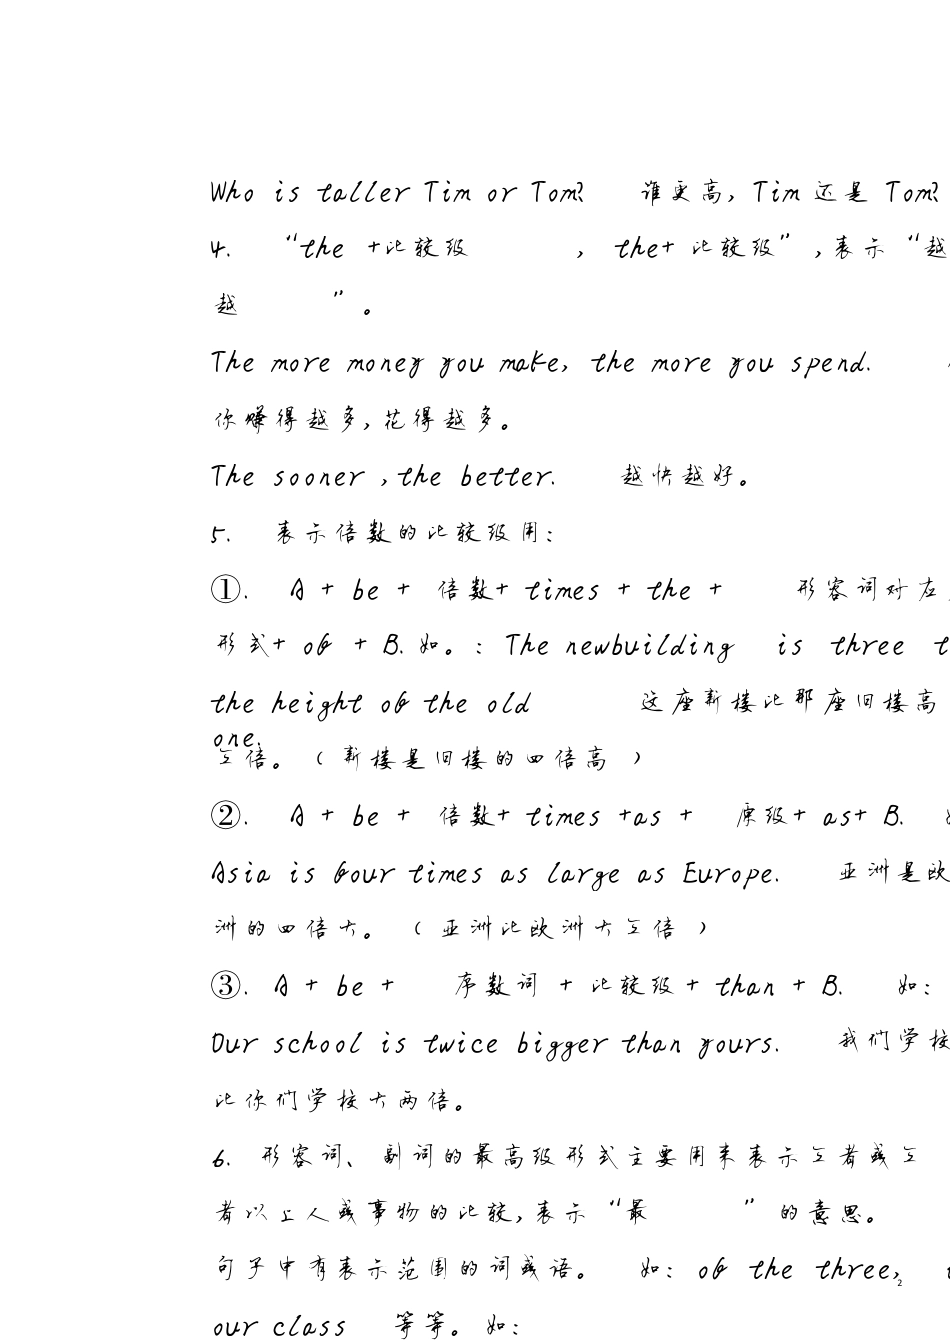 Who is taller Tim or Tom? 谁更高, Tim 还是 Tom?
4. “the +比较级 , the+ 比较级” ,表示 “越
越 ”。
The more money you make, the more you spend.
你赚得越多,花得越多。
The sooner ,the better. 越快越好。
5. 表示倍数的比较级用:
①. A + be + 倍数+ times + the + 形容词对应
形式+ of + B. 如。: The newbuilding is three
the height of the old 这座新楼比那座旧楼高
one.
三倍。( 新楼是旧楼的四倍高 )
②. A + be + 倍数+ times +as + 原级+ as+ B.
Asia is four times as large as Europe. 亚洲是欧
洲的四倍大。 ( 亚洲比欧洲大三倍 )
③. A + be + 序数词 + 比较级 + than + B. 如:
Our school is twice bigger than yours. 我们学校
比你们学校大两倍。
6. 形容词、 副词的最高级形式主要用来表示三者或三
者以上人或事物的比较,表示 “最 ” 的意思。
句子中有表示范围的词或语。 如: of the three,
2
our class 等等。 如: